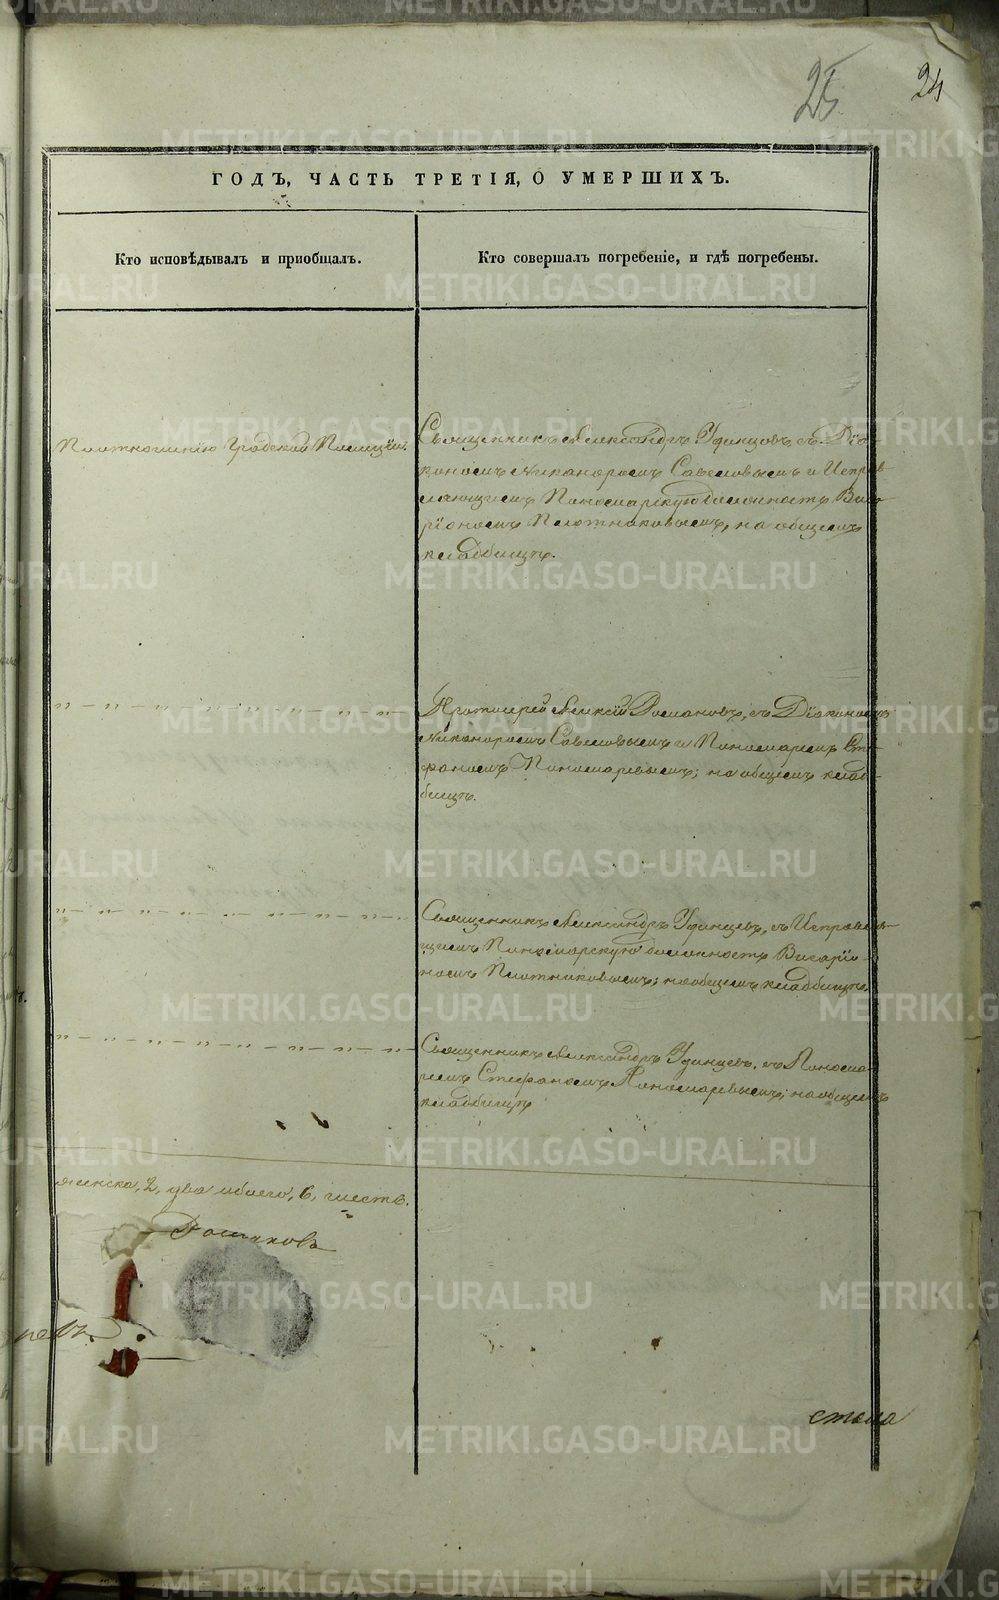 25
24
ГОДЪ, ЧАСТЬ ТРЕТІЯ, О УМЕРШИХЪ.
Кто исповѣдывалъ и приобщалъ.
Кто совершалъ погребеніе, и гдѣ погребены.
Градской Полиціи.
Священникъ Александръ Удинцовъ, съ Діа-
кономъ Никаноромъ Савеловымъ и Исправ-
ляющимъ Пономарскую должность Виса-
ріономъ Плотниковымъ, на общемъ
кладбищѣ.
Протоіерей Алексій Романовъ, съ Діакономъ
Никаноромъ Савеловымъ и Пономаремъ Сте-
фаномъ Пономаревымъ; на общемъ клад-
бищѣ.
Священникъ Александръ Удинцевъ, съ Исправляю-
щимъ Пономарскую должность Висаріо-
номъ Плотниковымъ; на общемъ кладбищѣ.
Священникъ Александръ Удинцевъ, съ Понома-
ремъ Стефаномъ Пономаревымъ; на общемъ
кладбищѣ
женска, 2, два обоего, 6, шесть.
стола
METRIKI.GASO-URAL.RU